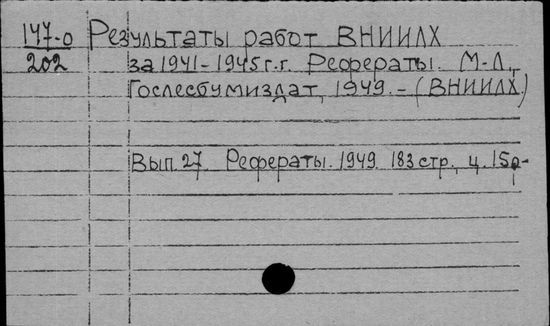 147-о Результаты работ ВНИИЛХ
202 за 1941-1945г.г. Рефераты. М-Л.,
Гослесбумиздат, 1949. - (ВНИИЛХ)
Вып. 27. Рефераты. 1949. 183 стр., ц. 15р-